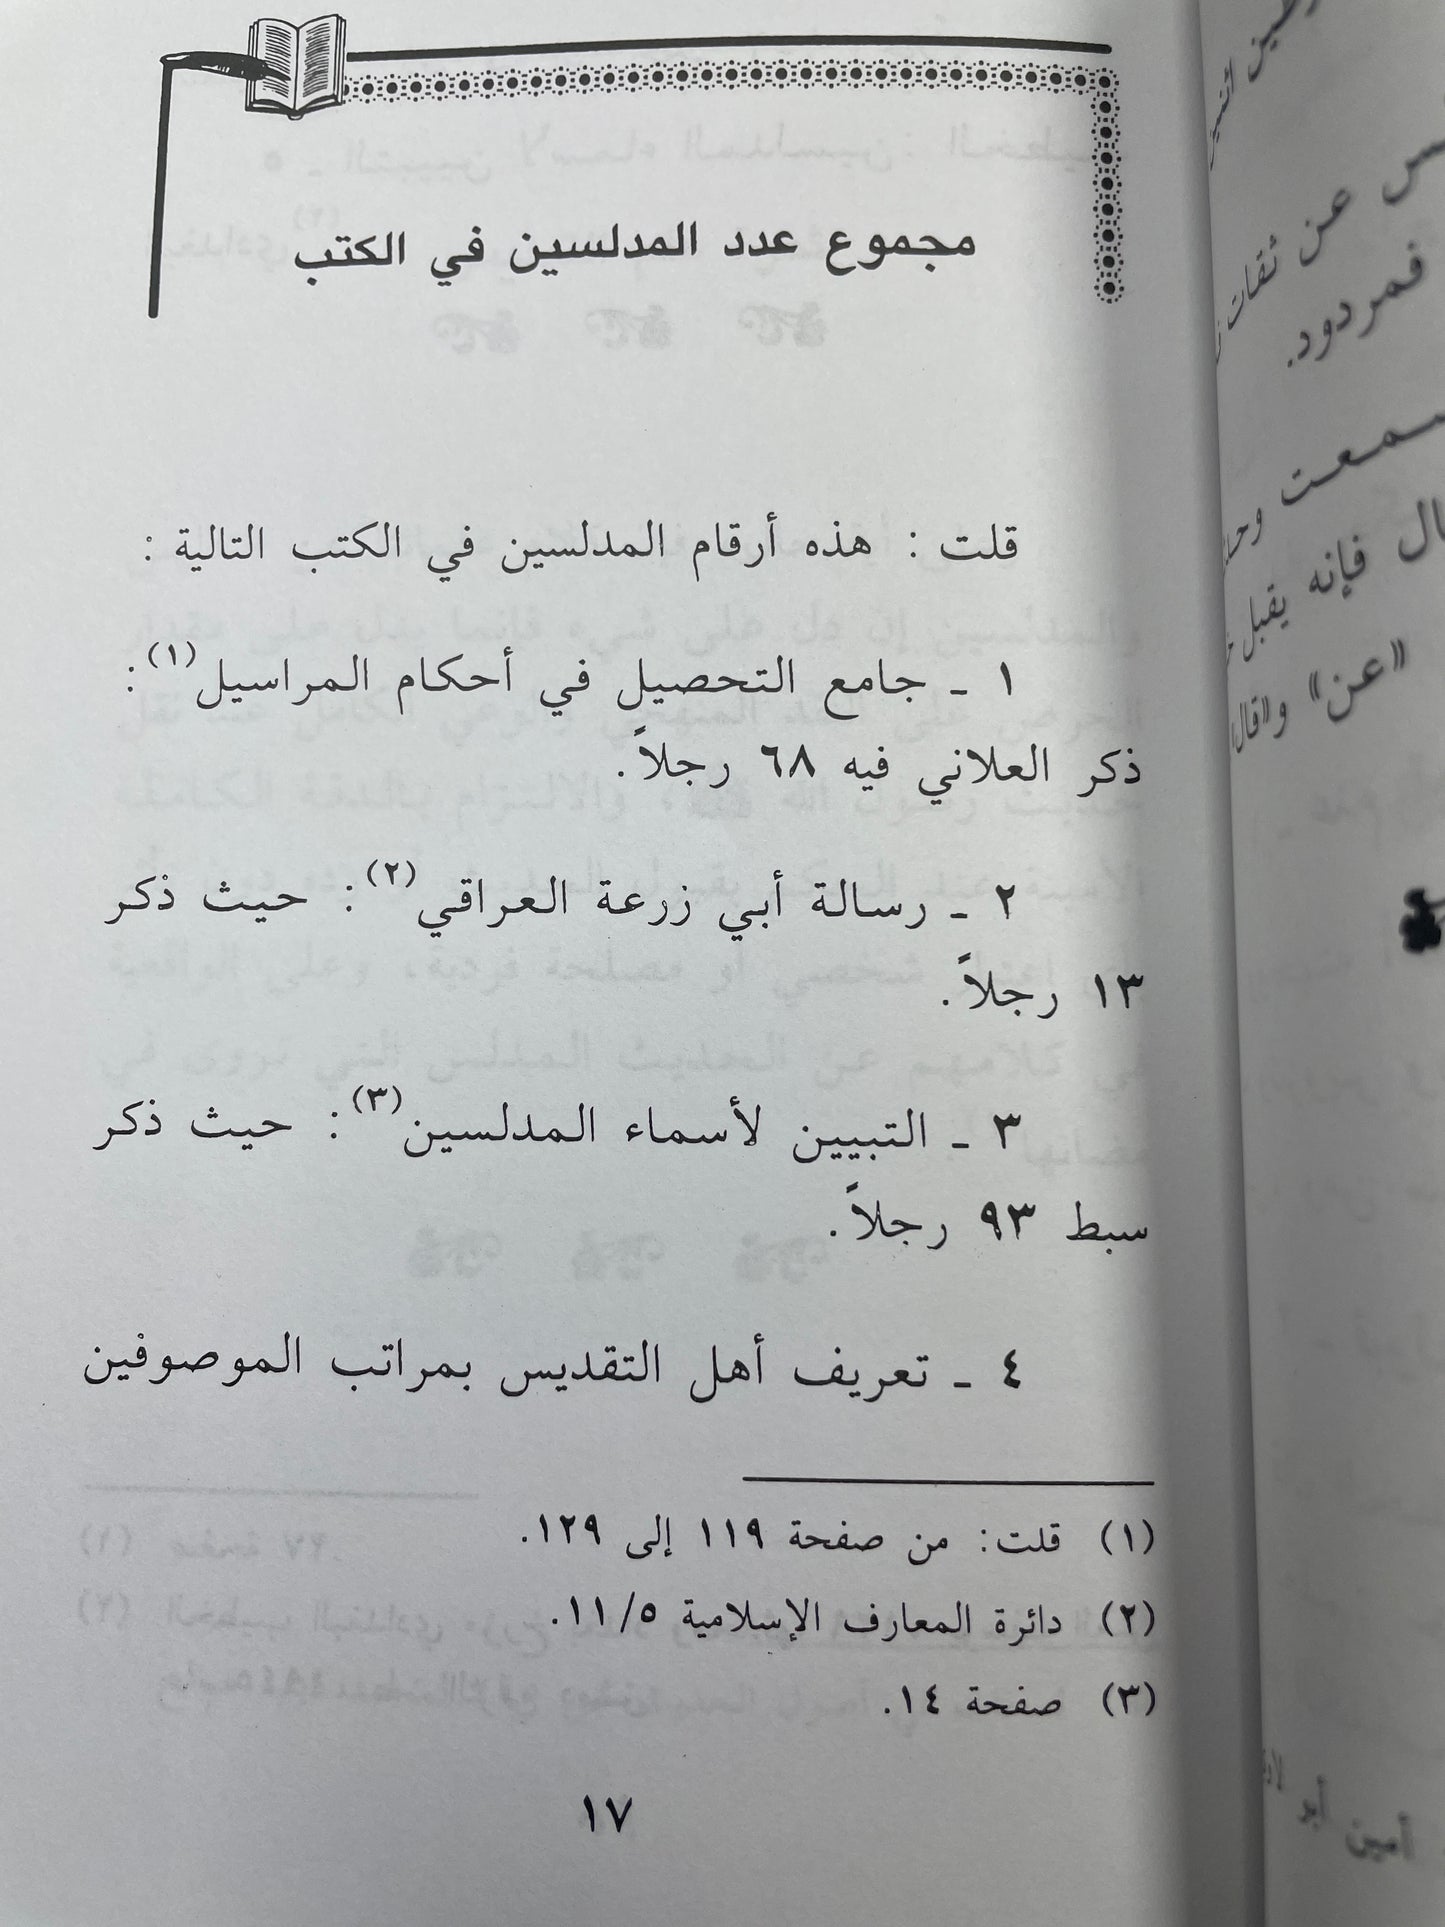 مجموع عدد المدلسين في الكتب
قلت : هذه أرقام المدلسين في الكتب التالية :
١ ـ جامع التحصيل في أحكام المراسيل(١):
ذكر العلاني فيه ٦٨ رجلاً.
٢ ـ رسالة أبي زرعة العراقي(٢): حيث ذكر
١٣ رجلاً.
٣ ـ التبيين لأسماء المدلسين(٣): حيث ذكر
سبط ٩٣ رجلاً.
٤ ـ تعريف أهل التقديس بمراتب الموصوفين
(١) قلت: من صفحة ١١٩ إلى ١٢٩.
(٢) دائرة المعارف الإسلامية ١١/٥.
(٣) صفحة ١٤.
١٧
عن ثقات
فمردود.
فإنه يقبل
«عن» و«قال
أمين